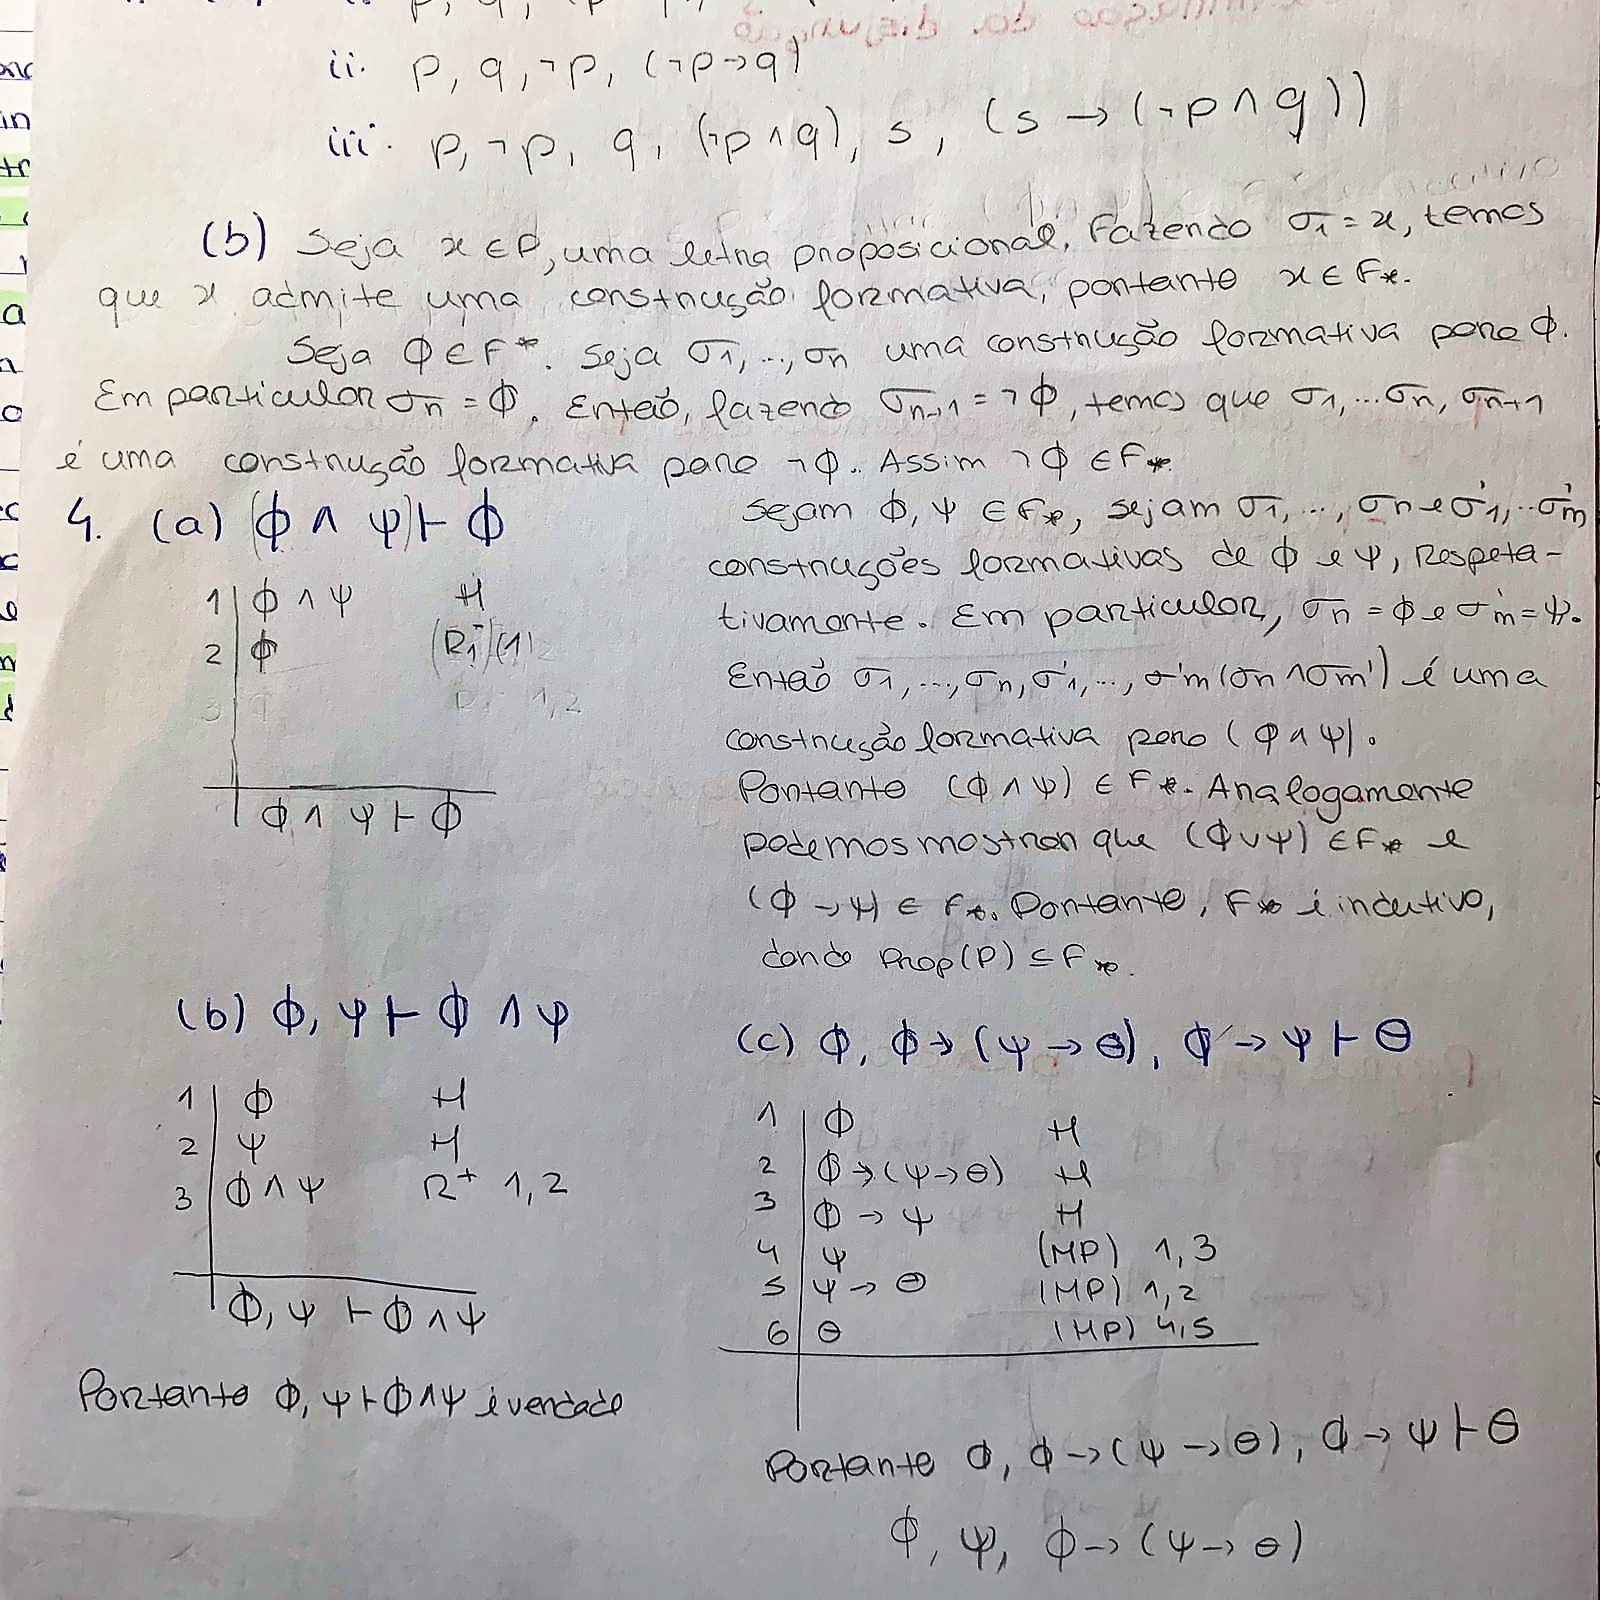 ii. p, q, ¬p, (¬p→q)
iii. p, ¬p, q, (¬p∧q), s, (s → (¬p∧q))
(b) Seja x ∈ P, uma letra proposicional. Fazendo σ1 = x, temos
que x admite uma construção formativa, portanto x ∈ F*.
Seja ϕ ∈ F*. Seja σ1, ..., σn uma construção formativa para ϕ.
Em particular σn = ϕ. Então, fazendo σn+1 = ¬ϕ, temos que σ1, ... σn, σn+1
é uma construção formativa para ¬ϕ. Assim ¬ϕ ∈ F*.
4. (a) (ϕ ∧ ψ) ⊢ ϕ
1 ϕ ∧ ψ H
2 ϕ (R1⁻) (1)
ϕ ∧ ψ ⊢ ϕ
Sejam ϕ, ψ ∈ F*, sejam σ1, ..., σn e σ'1, ... σ'm
construções formativas de ϕ e ψ, Respeta-
tivamonte. Em particular, σn = ϕ e σ'm = ψ.
Então σ1, ..., σn, σ'1, ..., σ'm (σn ∧ σm') é uma
construção formativa para (ϕ ∧ ψ).
Portanto (ϕ ∧ ψ) ∈ F*. Analogamente
podemos mostrar que (ϕ ∨ ψ) ∈ F* e
(ϕ → ψ) ∈ F*. Portanto, F* é indutivo,
donde Prop(P) ⊆ F*.
(b) ϕ, ψ ⊢ ϕ ∧ ψ
1 ϕ H
2 ψ H
3 ϕ ∧ ψ R⁺ 1, 2
ϕ, ψ ⊢ ϕ ∧ ψ
Portanto ϕ, ψ ⊢ ϕ ∧ ψ é verdade
(c) ϕ, ϕ → (ψ → θ), ϕ → ψ ⊢ θ
1 ϕ H
2 ϕ → (ψ → θ) H
3 ϕ → ψ H
4 ψ (MP) 1, 3
5 ψ → θ (MP) 1, 2
6 θ (MP) 4,5
Portanto ϕ, ϕ → (ψ → θ), ϕ → ψ ⊢ θ
ϕ, ψ, ϕ → (ψ → θ)